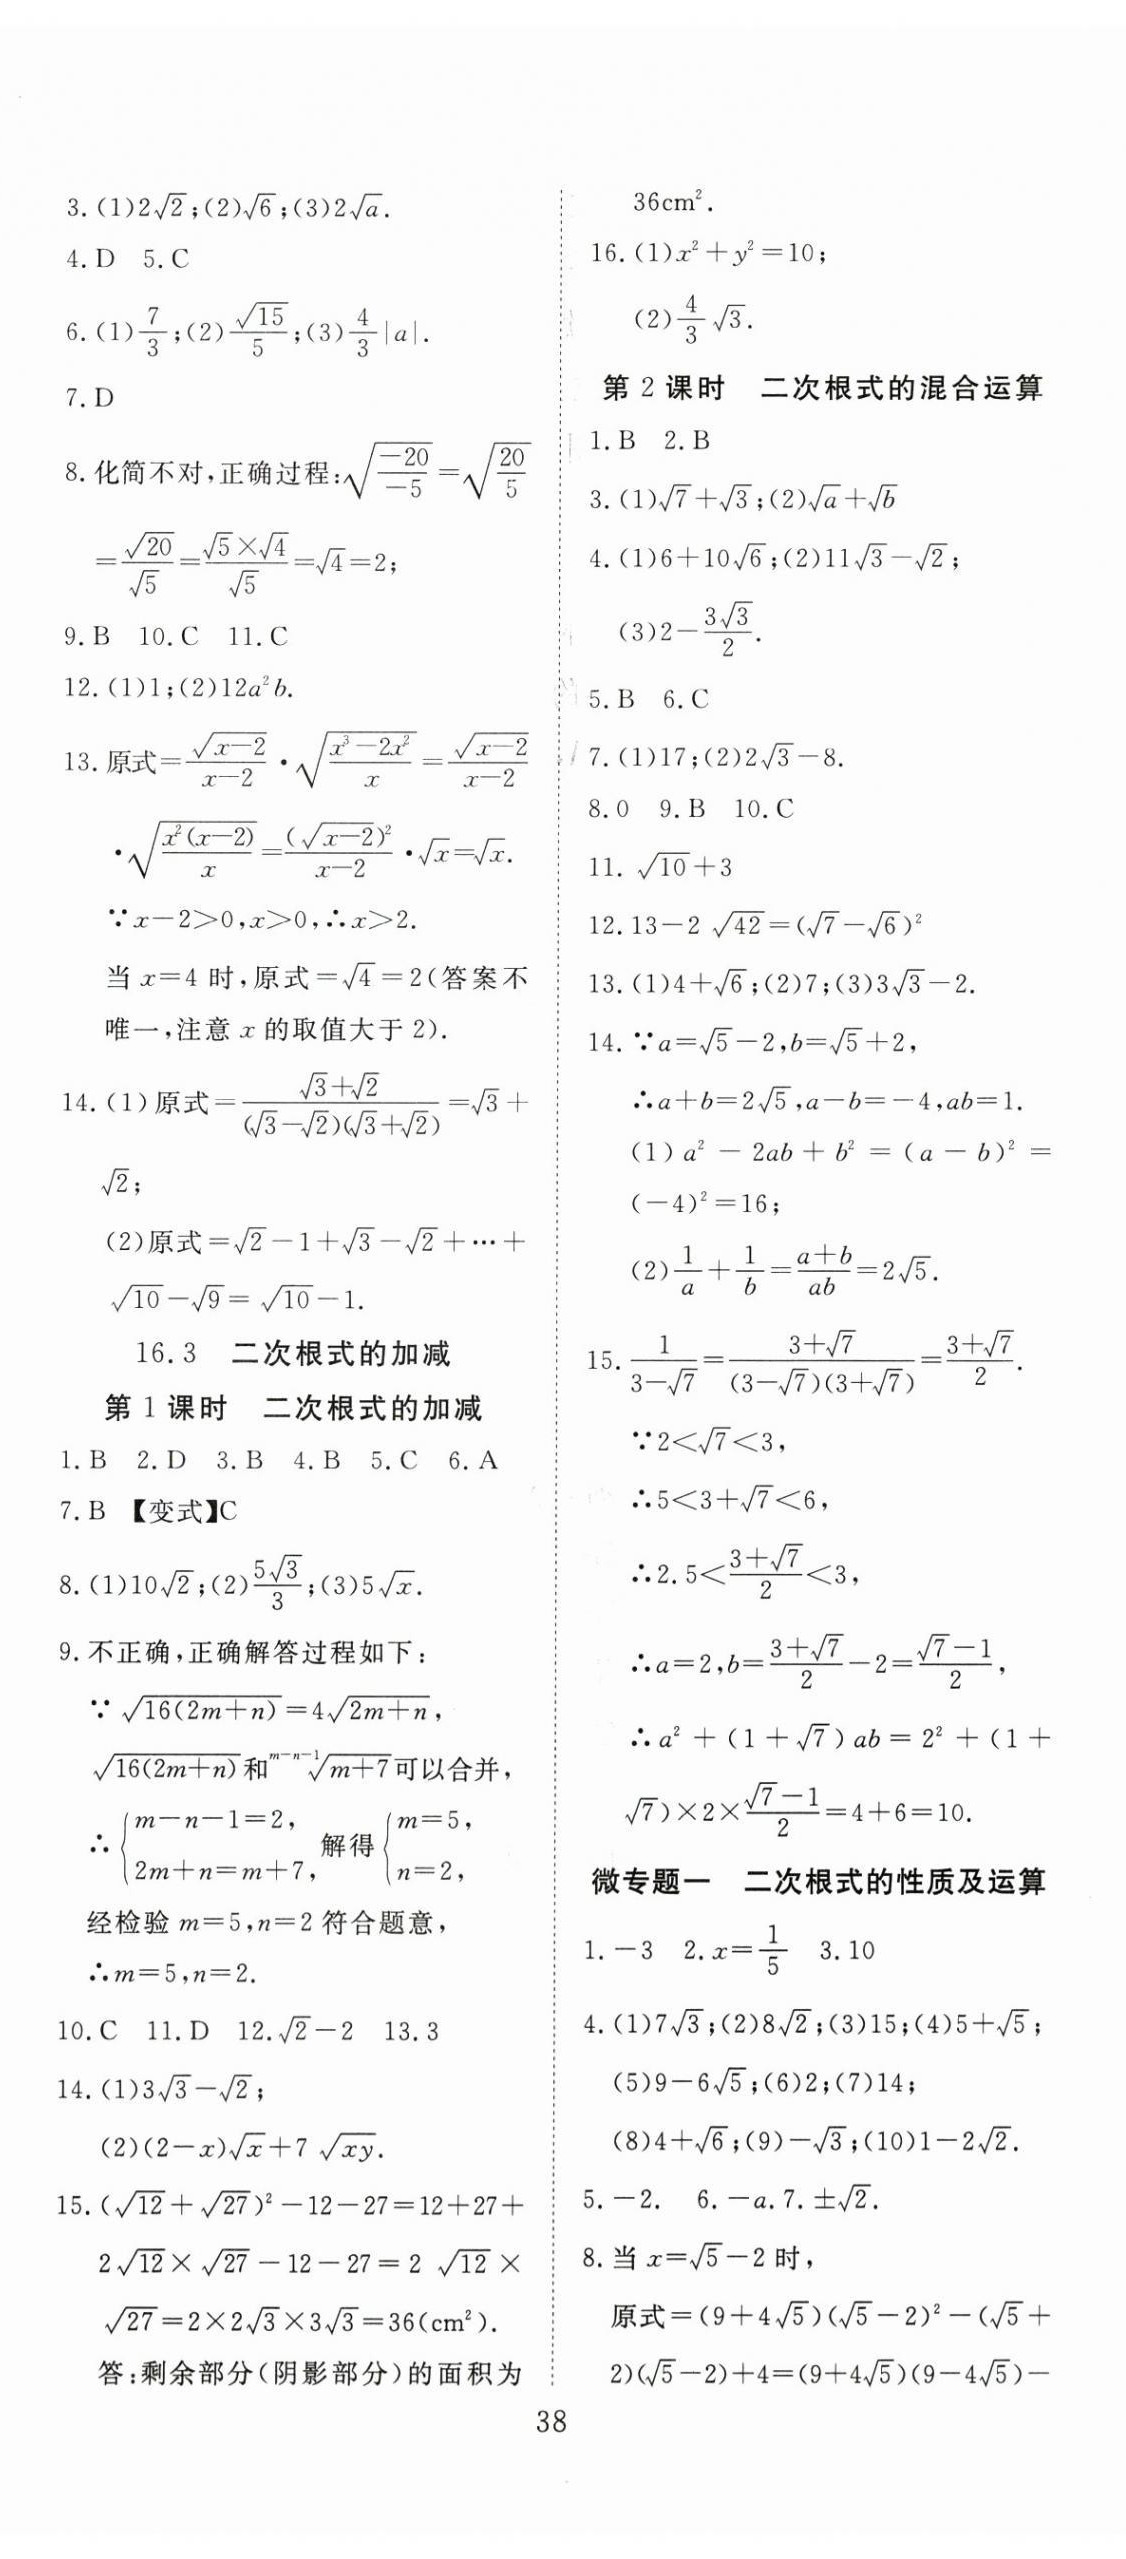 3.(1)2√2;(2)√6;(3)2√a.
4.D 5.C
6.(1)7/3;(2)√15/5;(3)4/3|a|.
7.D
8.化简不对,正确过程:√(−20/−5)=√(20/5)
=√20/√5=(√5×√4)/√5=√4=2;
9.B 10.C 11.C
12.(1)1;(2)12a²b.
13.原式=√(x−2)/(x−2)·√((x³−2x²)/x)=√(x−2)/(x−2)
·√(x²(x−2)/x)=(√(x−2))²/(x−2)·√x=√x.
∵x−2>0,x>0,∴x>2.
当x=4时,原式=√4=2(答案不
唯一,注意x的取值大于2).
14.(1)原式=(√3+√2)/((√3−√2)(√3+√2))=√3+
√2;
(2)原式=√2−1+√3−√2+…+
√10−√9=√10−1.
16.3 二次根式的加减
第1课时 二次根式的加减
1.B 2.D 3.B 4.B 5.C 6.A
7.B 【变式】C
8.(1)10√2;(2)5√3/3;(3)5√x.
9.不正确,正确解答过程如下:
∵√(16(2m+n))=4√(2m+n),
√(16(2m+n))和ᵐ⁻ⁿ⁻¹√(m+7)可以合并,
∴{m−n−1=2, 2m+n=m+7, 解得{m=5, n=2,
经检验m=5,n=2符合题意,
∴m=5,n=2.
10.C 11.D 12.√2−2 13.3
14.(1)3√3−√2;
(2)(2−x)√x+7√(xy).
15.(√12+√27)²−12−27=12+27+
2√12×√27−12−27=2√12×
√27=2×2√3×3√3=36(cm²).
答:剩余部分(阴影部分)的面积为
36cm².
16.(1)x²+y²=10;
(2)4/3√3.
第2课时 二次根式的混合运算
1.B 2.B
3.(1)√7+√3;(2)√a+√b
4.(1)6+10√6;(2)11√3−√2;
(3)2−3√3/2.
5.B 6.C
7.(1)17;(2)2√3−8.
8.0 9.B 10.C
11.√10+3
12.13−2√42=(√7−√6)²
13.(1)4+√6;(2)7;(3)3√3−2.
14.∵a=√5−2,b=√5+2,
∴a+b=2√5,a−b=−4,ab=1.
(1)a²−2ab+b²=(a−b)²=
(−4)²=16;
(2)1/a+1/b=(a+b)/ab=2√5.
15.1/(3−√7)=(3+√7)/((3−√7)(3+√7))=(3+√7)/2.
∵2<√7<3,
∴5<3+√7<6,
∴2.5<(3+√7)/2<3,
∴a=2,b=(3+√7)/2−2=(√7−1)/2,
∴a²+(1+√7)ab=2²+(1+
√7)×2×(√7−1)/2=4+6=10.
微专题一 二次根式的性质及运算
1.−3 2.x=1/5 3.10
4.(1)7√3;(2)8√2;(3)15;(4)5+√5;
(5)9−6√5;(6)2;(7)14;
(8)4+√6;(9)−√3;(10)1−2√2.
5.−2. 6.−a.7.±√2.
8.当x=√5−2时,
原式=(9+4√5)(√5−2)²−(√5+
2)(√5−2)+4=(9+4√5)(9−4√5)−
38